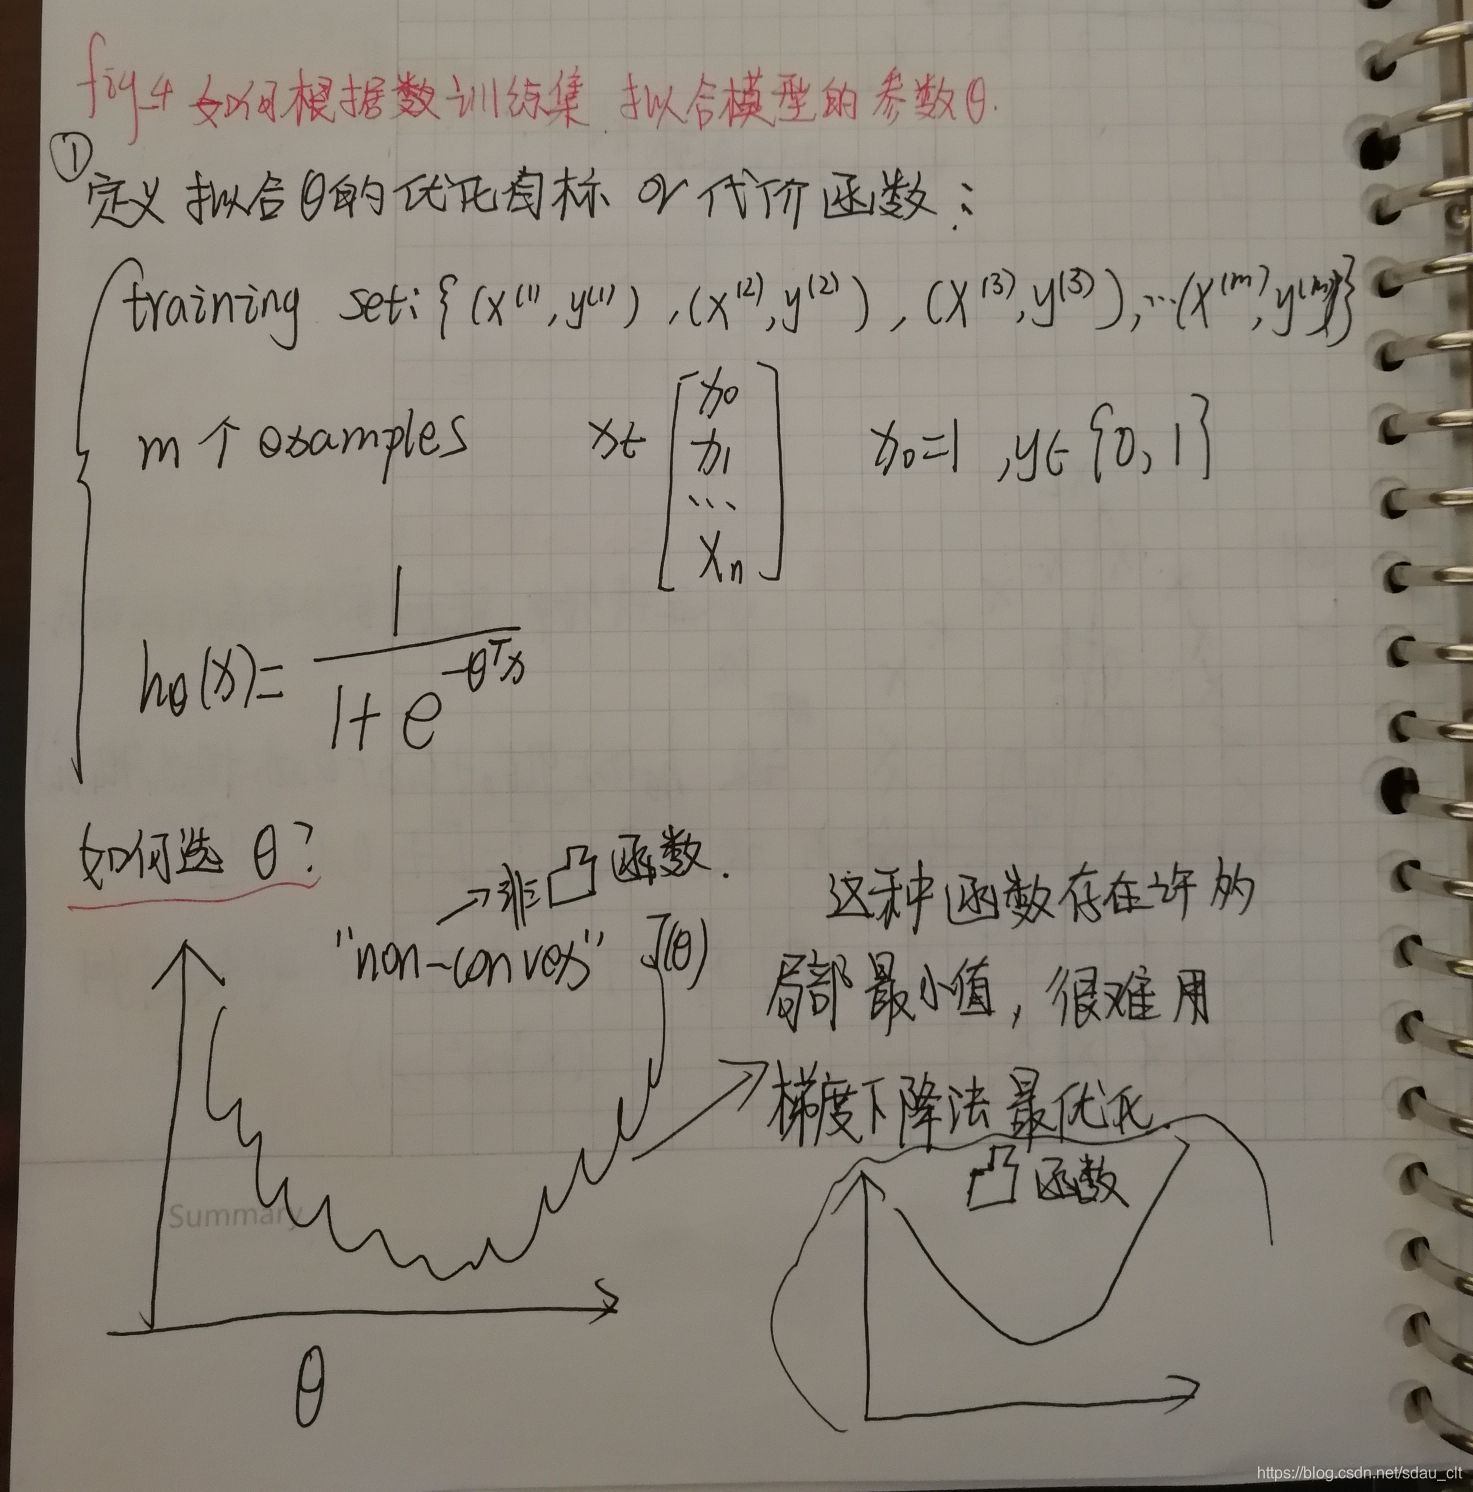 fig_4 如何根据数训练集 拟合模型的参数θ.
① 定义拟合θ的优化目标 or 代价函数:
training set: {(x⁽¹⁾, y⁽¹⁾), (x⁽²⁾, y⁽²⁾), (x⁽³⁾, y⁽³⁾), …(x⁽ᵐ⁾, y⁽ᵐ⁾)}
m个examples x∈ [x₀ x₁ … xₙ] x₀=1, y∈{0, 1}
h_θ(x) = 1 / (1 + e^(-θᵀx))
如何选 θ?
→非凸函数.
"non-convex" J(θ)
这种函数存在许多
局部最小值, 很难用
梯度下降法最优化.
凸函数
Summary
θ
https://blog.csdn.net/sdau_clt